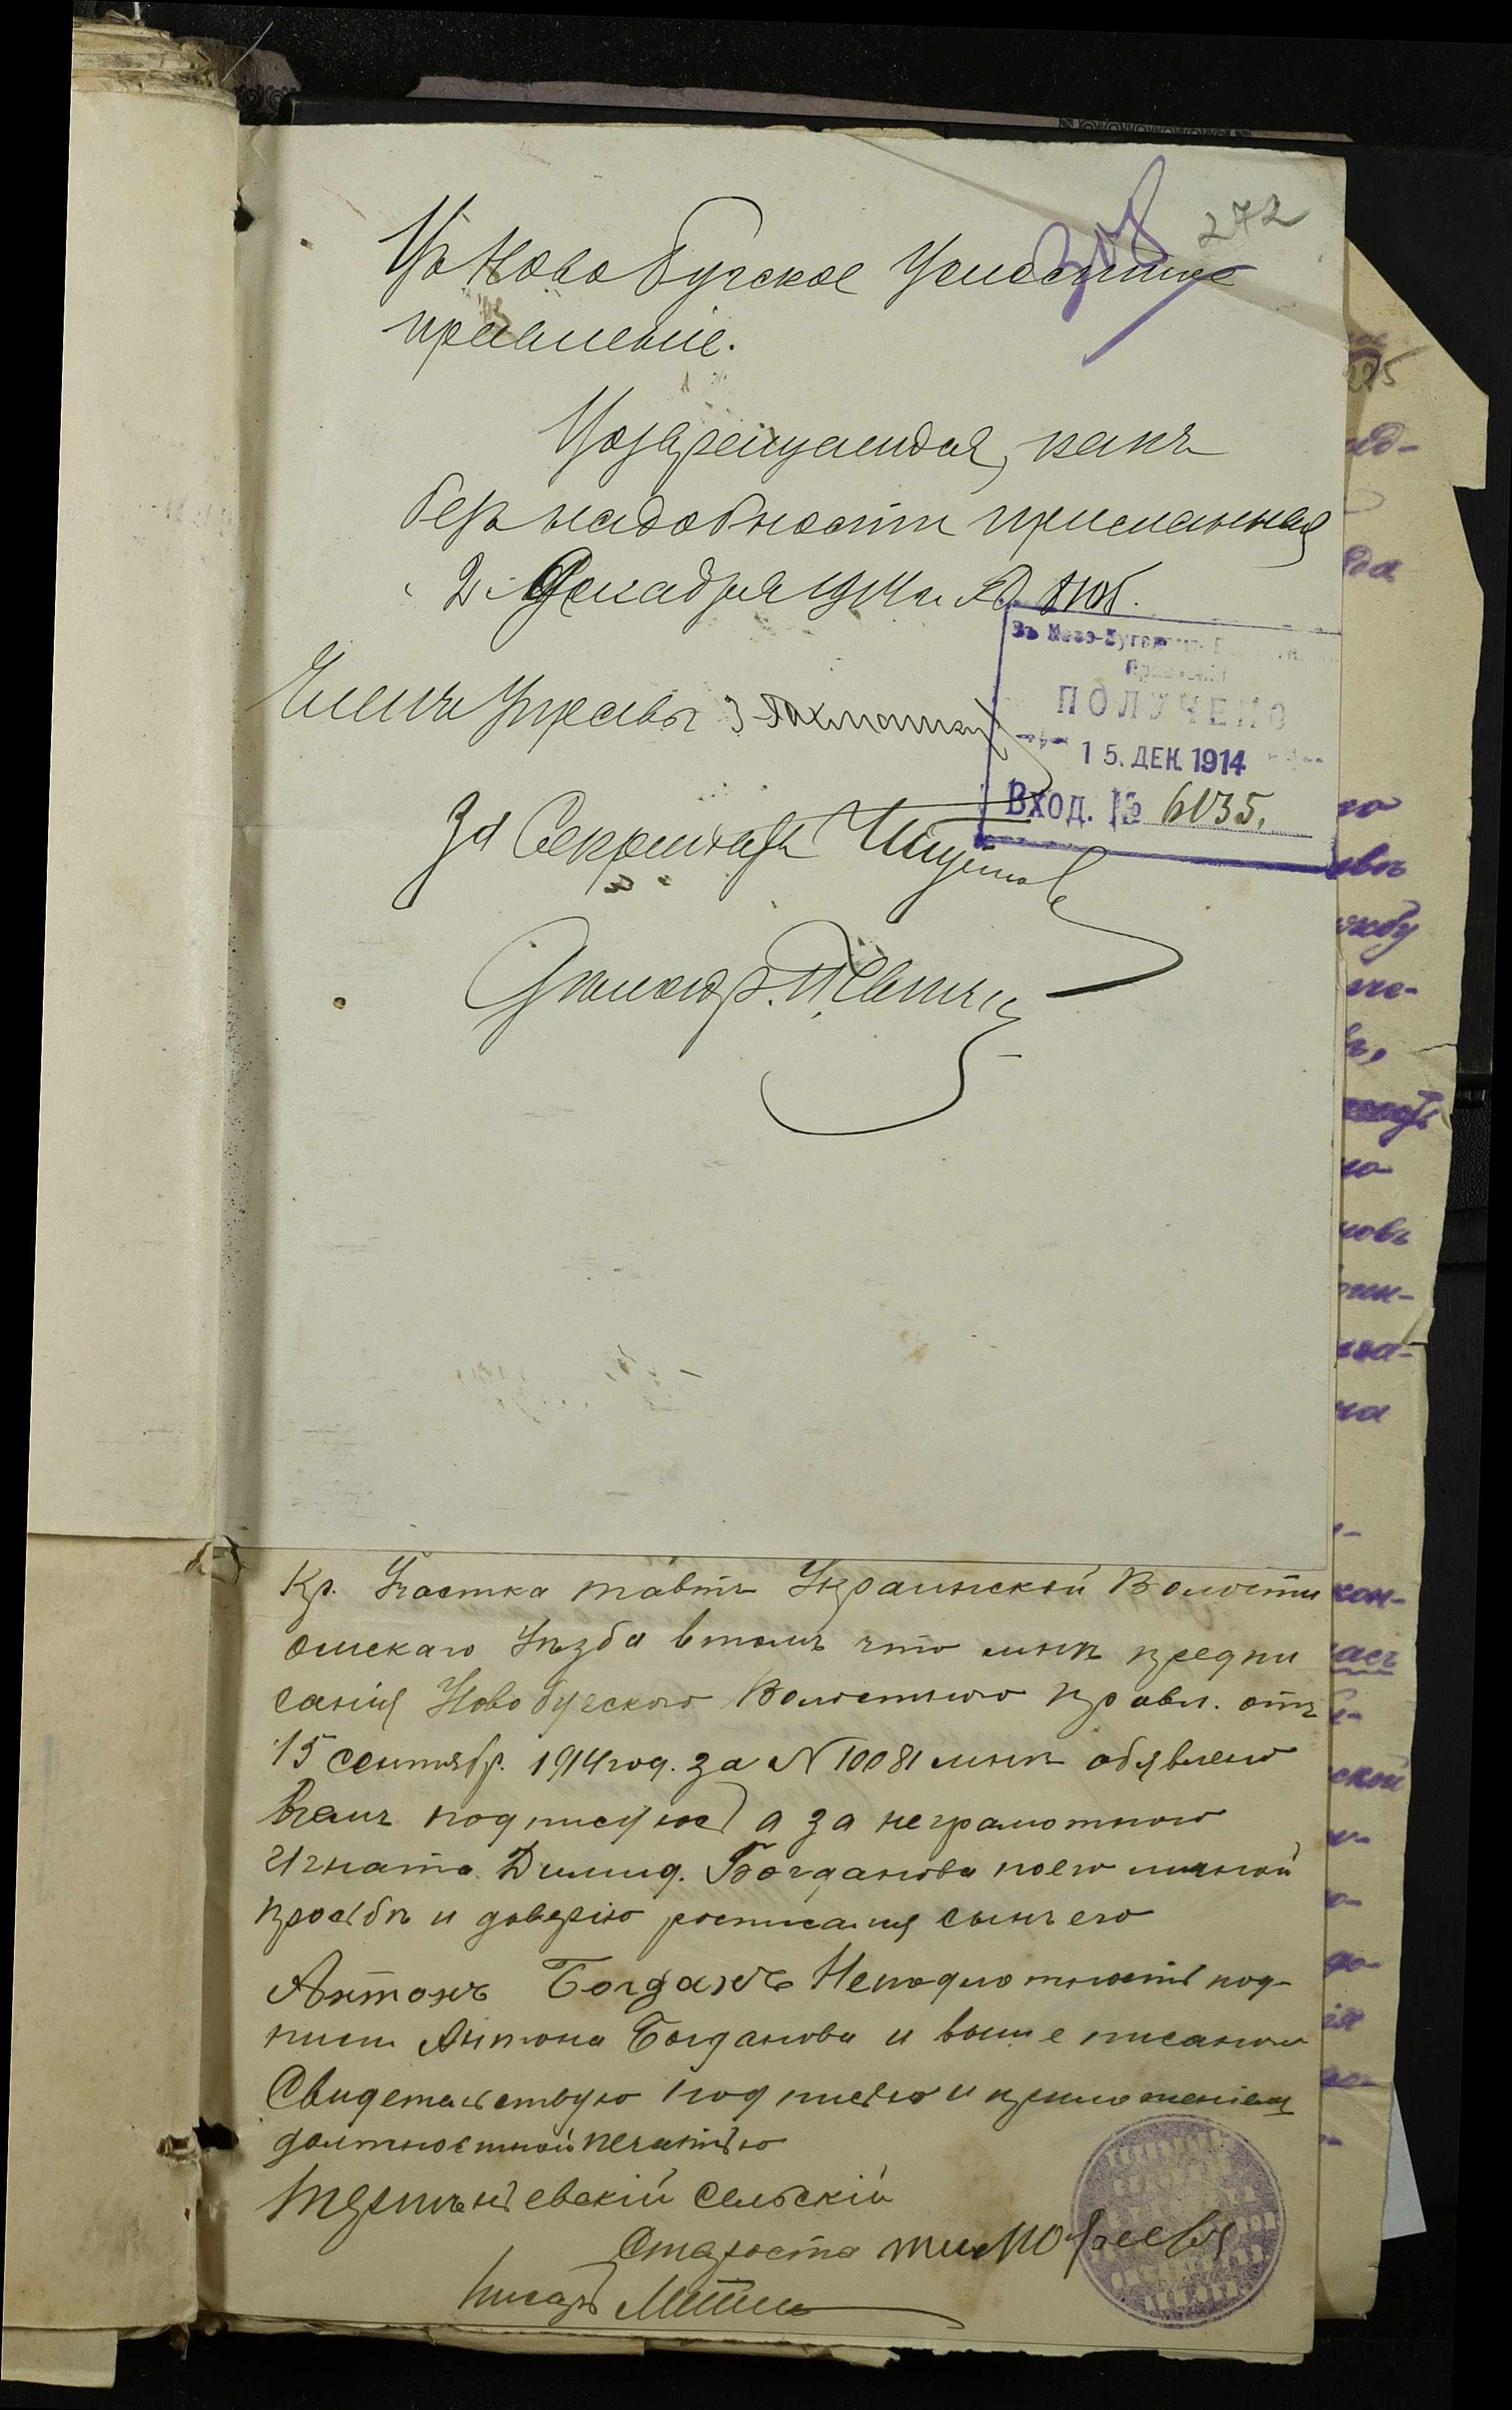 272
Въ Новобугское Волостное
правленіе.
Возвращается, какъ
безъ надобности присланная
2 Декабря 1914 г. №
Въ Ново-Бугском
ПОЛУЧЕНО
15. ДЕК. 1914
Вход. № 6135.
Членъ Управы
За Секретаря
Кр. Участка Украинской Волости
Омскаго Уѣзда втомъ что мнѣ предпи
санія Новобугского Волостного Правл. отъ
15 сентябр. 1914 год. за N 10081 мнѣ объявлено
вчемъ подписуюсь а за неграмотного
Игната Димид. Богданова поего личной
прозьбѣ и доверію росписался сынъ его
Антонъ Богдановъ Неподложность под-
писи Антона Богданова и выше писаного
Свидетельствую подписью и приложеніемъ
должностной печатью
Сельскій
Староста Тимофеевъ
Писарь